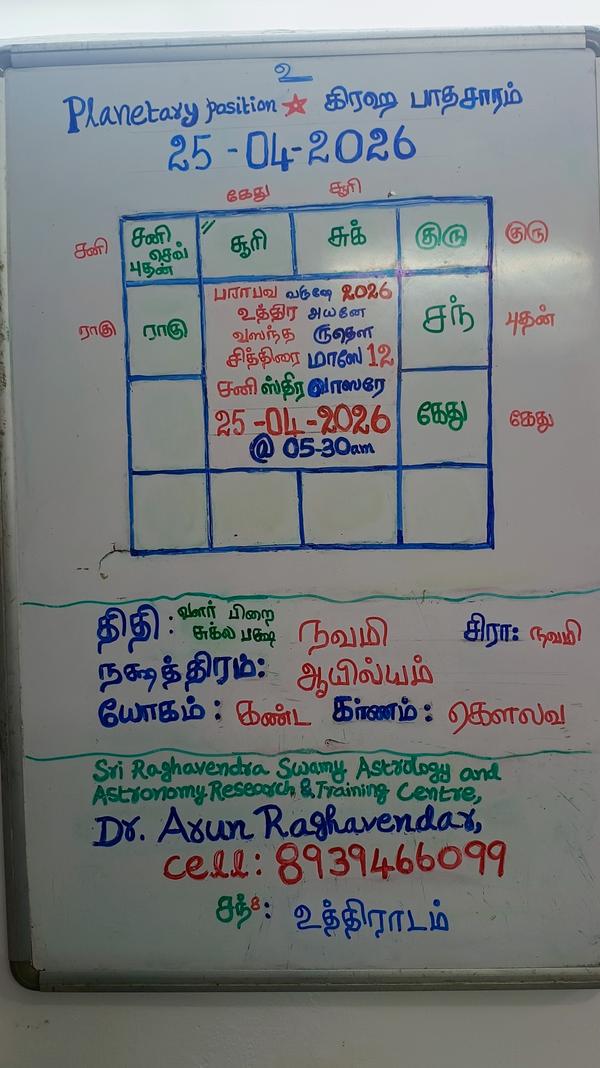 உ
Planetary position ☆ கிரஹ பாதசாரம்
25-04-2026
கேது சூரி
சனி சனி செவ் புதன் சூரி சுக் குரு குரு
பராபவ வருஷே 2026
உத்திர அயனே
ராகு ராகு வஸந்த ருதௌ சந் புதன்
சித்திரை மாஸே 12
சனி ஸ்திர வாஸரே
25-04-2026 கேது கேது
@ 05-30am
திதி : வளர் பிறை சுக்ல பக்ஷ நவமி சிரா: நவமி
நக்ஷத்திரம்: ஆயில்யம்
யோகம் : கண்ட கர்ணம் : கௌலவ
Sri Raghavendra Swamy Astrology and
Astronomy Research & Training Centre,
Dr. Arun Raghavendar,
cell: 8939466099
சந்8: உத்திராடம்